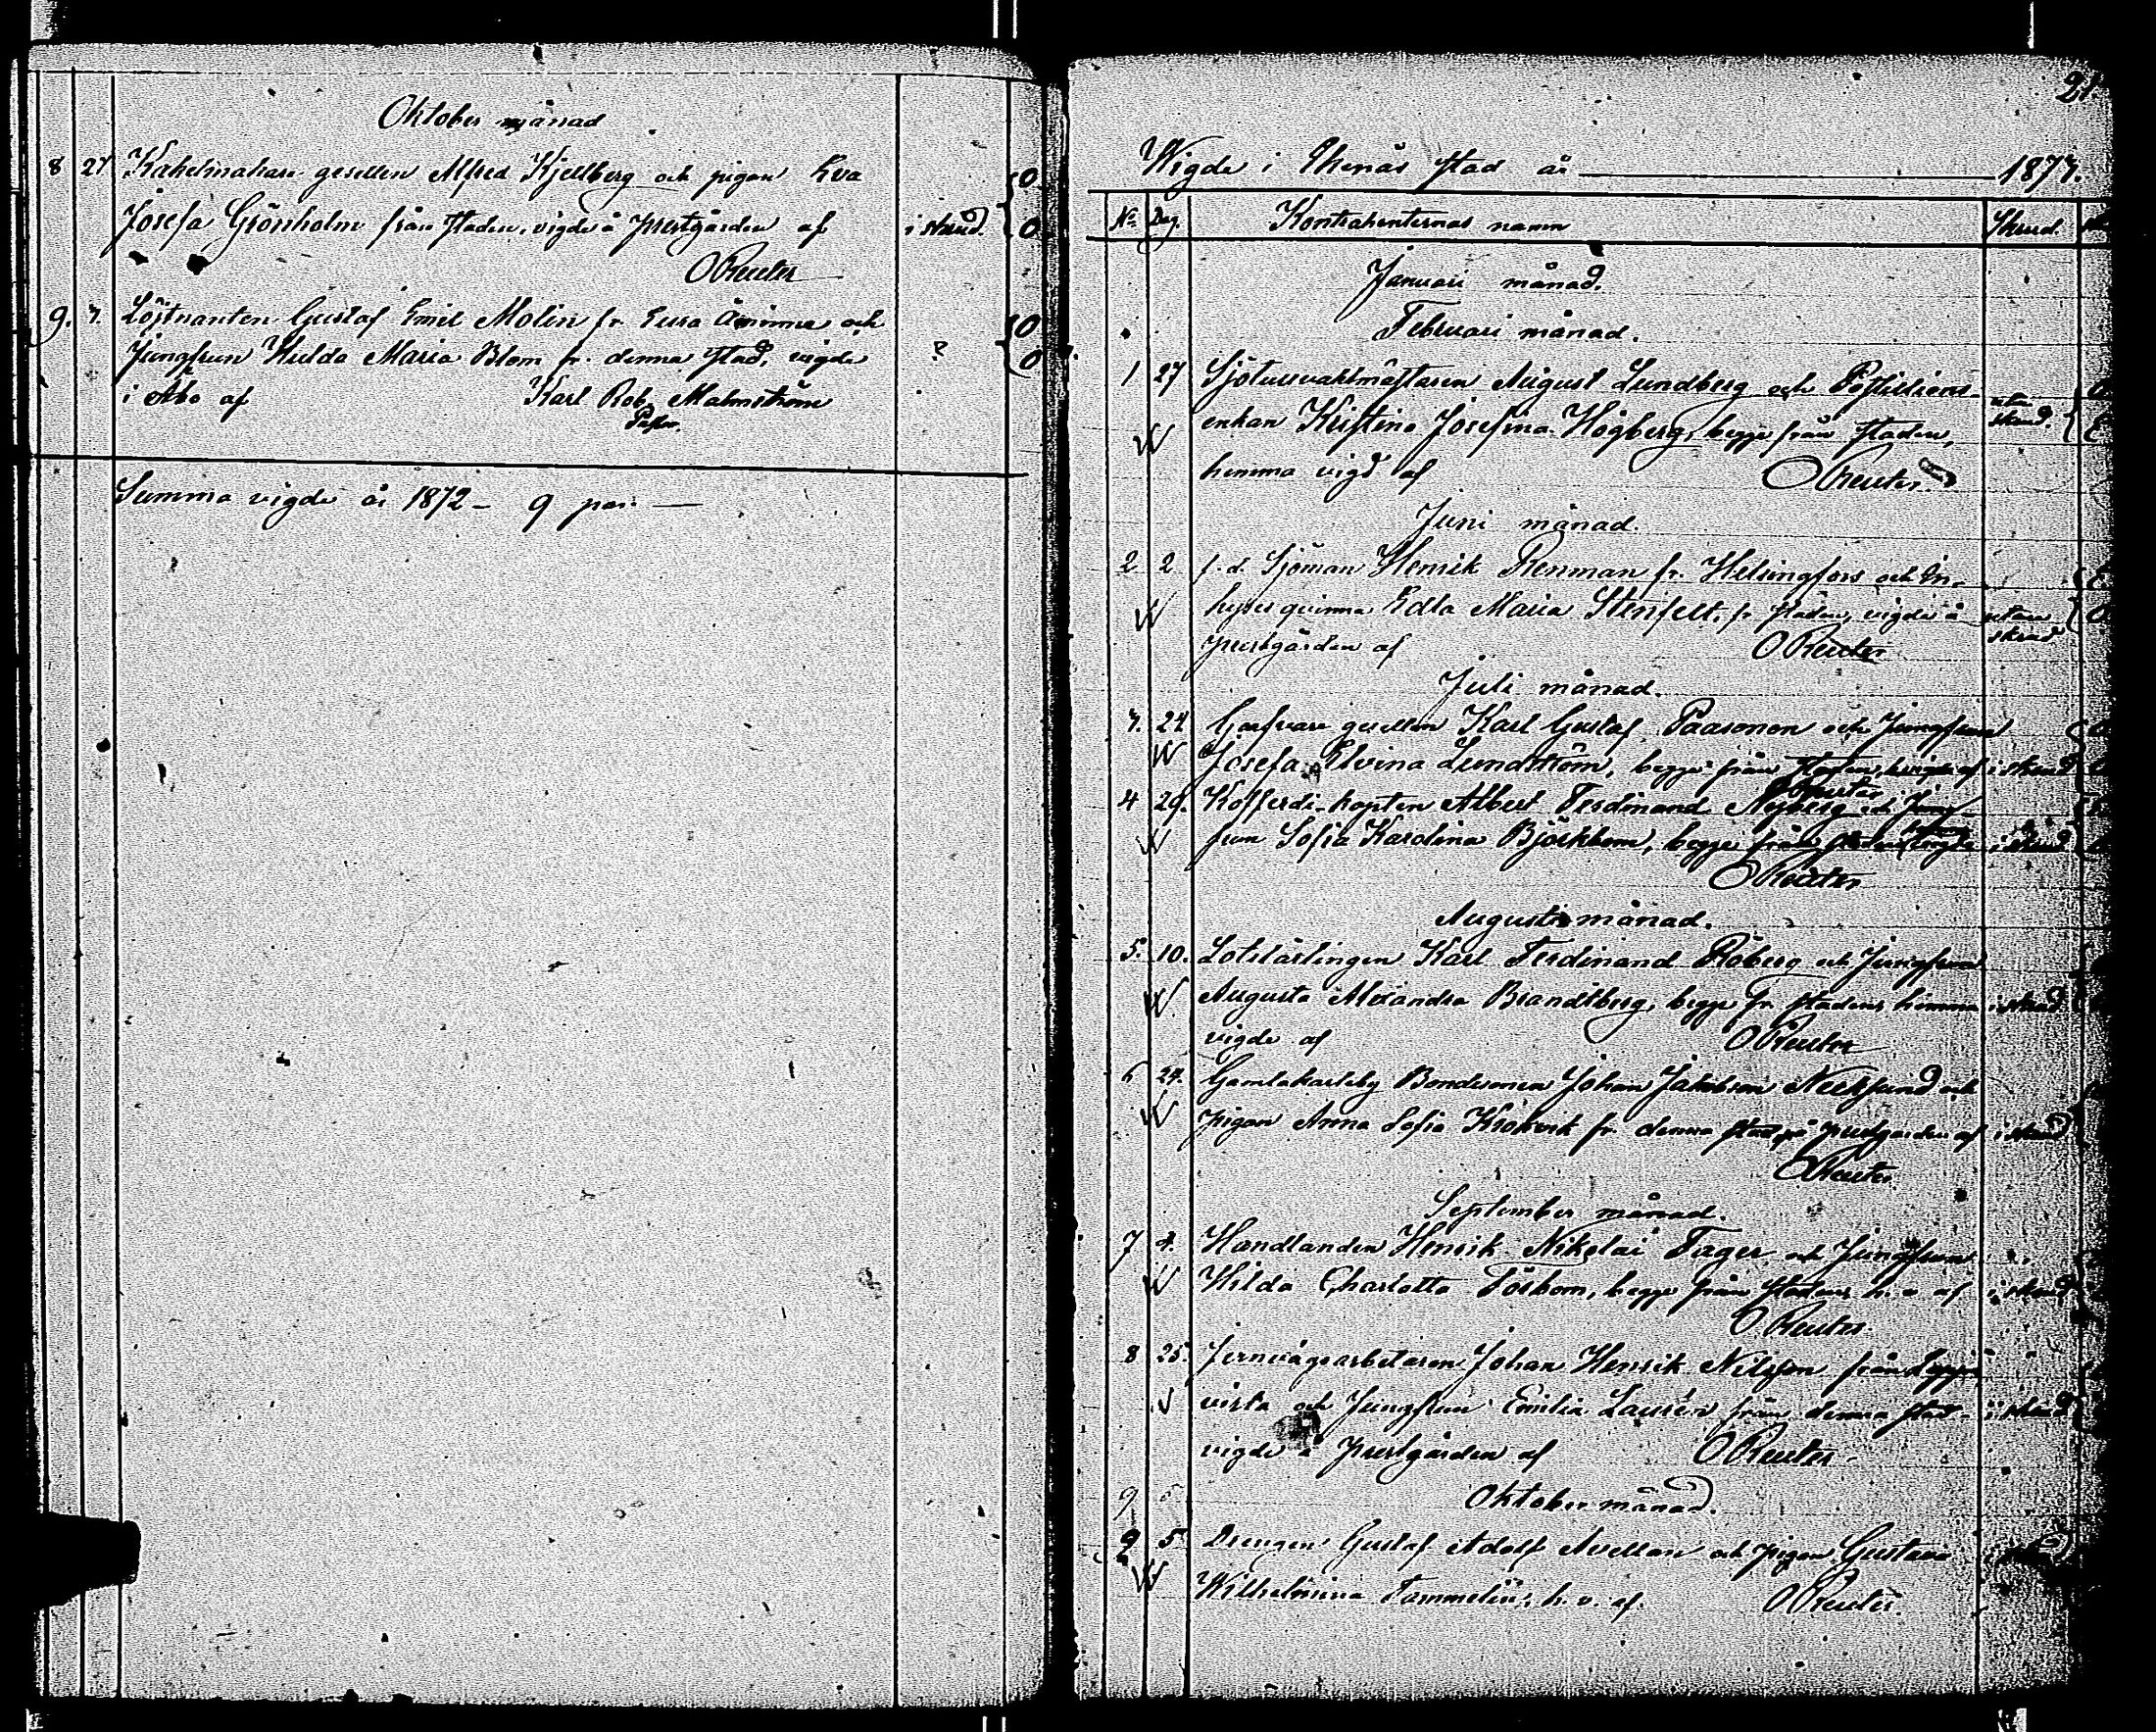 Oktober månad
8 27 Kakelmakare gesellen Alfred Kjellberg och pigan Eva
Josefa Grönholm från staden, vigde å prestgården af i skrud. O
O
O Reuter
9. 7. Löjtnanten Gustaf Emil Molin fr. Eura Åminne och O
Jungfrun Hulda Maria Blom fr. denna stad, vigde ? O
i Åbo af Karl Rob. Malmström
Pastor.
Summa vigde år 1872 – 9 par. —
21.
Wigde i Ekenäs stad år 1873.
No. Dag. Kontrahenternas namn Skrud.
Januari månad.
Februari månad.
1 27 Sjötullvaktmästaren August Lundberg och Postiljons-
enkan Kristina Josefina Högberg, begge från staden, utan skrud.
hemma vigd af O Reuter.
Juni månad.
2 2 f.d. Sjöman Henrik Renman fr. Helsingfors och In-
hyses qvinna Edla Maria Stenfelt, fr. staden, vigde å utan skrud
prestgården af O Reuter
Juli månad.
3. 24 Garfvare gesellen Karl Gustaf Paasonen och Jungfrun
Josefa Elvina Lundström, begge från staden, af i skrud
O Reuter
4 29. Kofferdi-kapten Albert Ferdinand Nyberg och Jung-
frun Sofia Karolina Björkbom, begge från staden, vigde i skrud
O Reuter
Augusti månad.
5. 10. Lotslärlingen Karl Ferdinand Röberg och Jungfrun
Augusta Alexandra Brandtberg, begge fr. staden, hemma i skrud
vigde af O Reuter
6 24. Gamlakarleby Bondesonen Johan Jakobson och
pigan Anna Sofia Krokvik fr. denna stad, på prestgården af i skrud
O Reuter
September månad.
7 4. Handlanden Henrik Nikolai Tiger och Jungfrun
Hilda Charlotta Törbom, begge från staden, h. v. af i skrud
O Reuter.
8 25. Jernvägsarbetaren Johan Henrik Nilsson från
virta och Jungfrun Emilia Laurén från denna stad i skrud
vigde å prestgården af O Reuter.
9 5 Oktober månad.
9 5 Drengen Gustaf Adolf Avellan och pigan Gustava
Wilhelmina Tammelin, h. v. af. O Reuter.